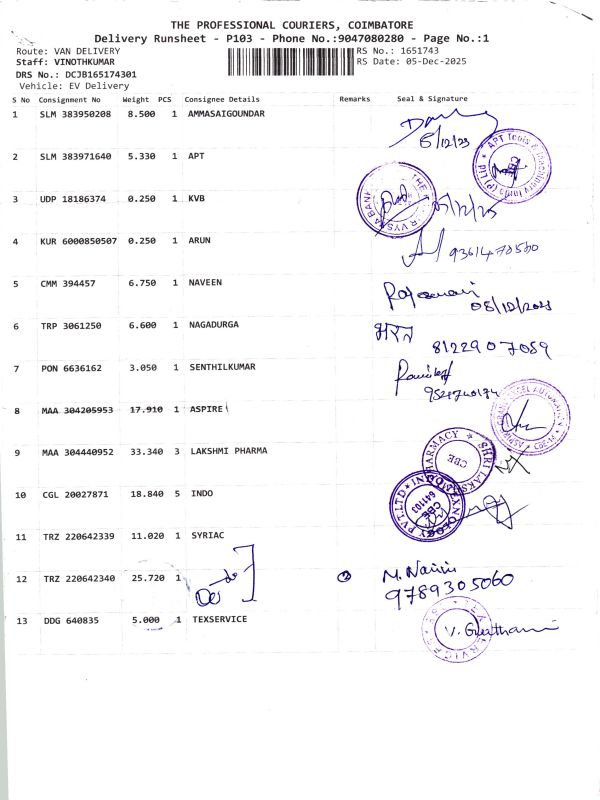 THE PROFESSIONAL COURIERS, COIMBATORE
Delivery Runsheet - P103 - Phone No.:9047080280 - Page No.:1
Route: VAN DELIVERY RS No.: 1651743
Staff: VINOTHKUMAR RS Date: 05-Dec-2025
DRS No.: DCJB165174301
Vehicle: EV Delivery
S No Consignment No Weight PCS Consignee Details Remarks Seal & Signature
1 SLM 383950208 8.500 1 AMMASAIGOUNDAR
2 SLM 383971640 5.330 1 APT
3 UDP 18186374 0.250 1 KVB
4 KUR 6000850507 0.250 1 ARUN
5 CMM 394457 6.750 1 NAVEEN
05/12/2025
6 TRP 3061250 6.600 1 NAGADURGA
भरत
8122907089
7 PON 6636162 3.050 1 SENTHILKUMAR
8 MAA 304205953 17.910 1 ASPIRE
9 MAA 304440952 33.340 3 LAKSHMI PHARMA
PHARMACY ★ SHRI LAKS
CBE
10 CGL 20027871 18.840 5 INDO
CBE
641103
11 TRZ 220642339 11.020 1 SYRIAC
12 TRZ 220642340 25.720 1
M. Navin
9789305060
13 DDG 640835 5.000 1 TEXSERVICE
V. Gowthami